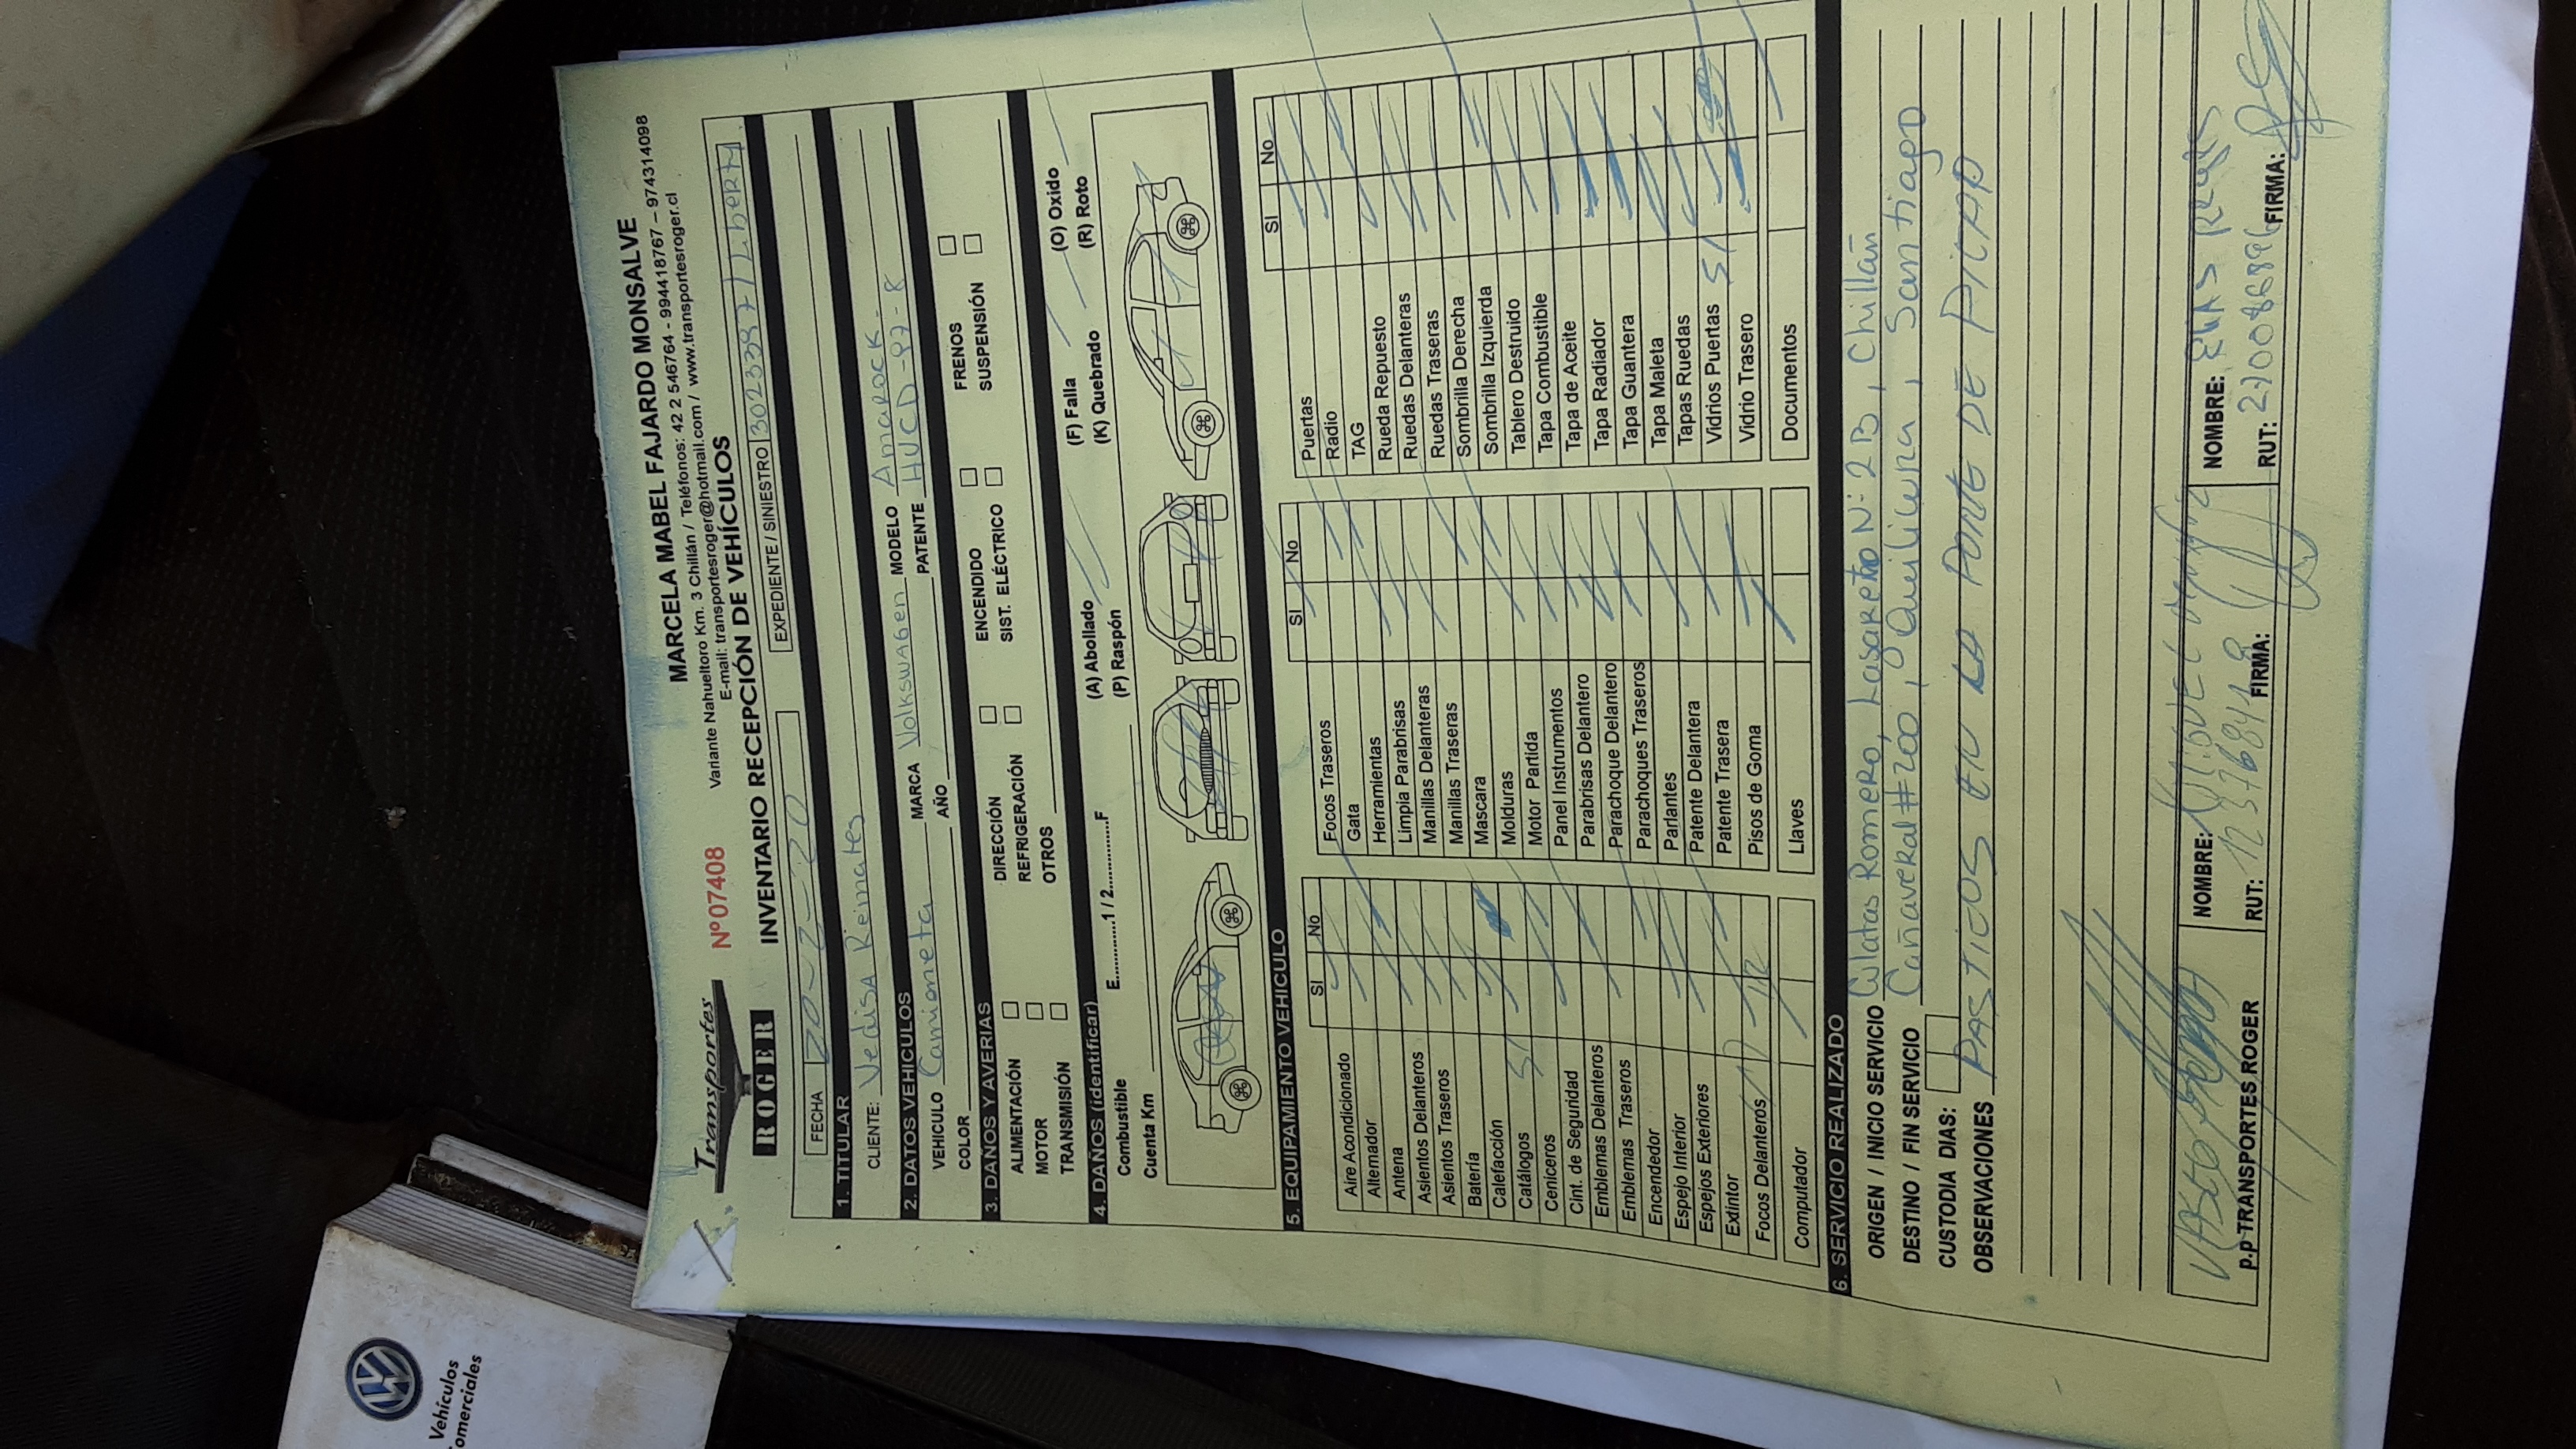 Transportes
ROGER
Nº 07408
MARCELA MABEL FAJARDO MONSALVE
Variante Nahueltoro Km. 3 Chillán / Teléfonos: 42 2 546764 - 994418767 – 974314098
E-mail: transportesroger@hotmail.com / www.transportesroger.cl
INVENTARIO RECEPCIÓN DE VEHÍCULOS
FECHA 20-2-20 EXPEDIENTE / SINIESTRO 3023397/Liberty
1. TITULAR
CLIENTE: Vedisa Remates
2. DATOS VEHICULOS
VEHICULO Camioneta MARCA Volkswagen MODELO Amarock-
COLOR AÑO PATENTE HUCD-97-8
3. DAÑOS Y AVERIAS
ALIMENTACIÓN DIRECCIÓN ENCENDIDO FRENOS
MOTOR REFRIGERACIÓN SIST. ELÉCTRICO SUSPENSIÓN
TRANSMISIÓN OTROS
4. DAÑOS (identificar)
Combustible E.............1 / 2.............F (A) Abollado (F) Falla (O) Oxido
Cuenta Km (P) Raspón (K) Quebrado (R) Roto
5. EQUIPAMIENTO VEHICULO
SI No SI No SI No
Aire Acondicionado Focos Traseros Puertas
Alternador Gata Radio
Antena Herramientas TAG
Asientos Delanteros Limpia Parabrisas Rueda Repuesto
Asientos Traseros Manillas Delanteras Ruedas Delanteras
Batería Manillas Traseras Ruedas Traseras
Calefacción Mascara Sombrilla Derecha
Catálogos SI Molduras Sombrilla Izquierda
Ceniceros Motor Partida Tablero Destruido
Cint. de Seguridad Panel Instrumentos Tapa Combustible
Emblemas Delanteros Parabrisas Delantero Tapa de Aceite
Emblemas Traseros Parachoque Delantero Tapa Radiador
Encendedor Parachoques Traseros Tapa Guantera
Espejo Interior Parlantes Tapa Maleta
Espejos Exteriores Patente Delantera Tapas Ruedas
Extintor Patente Trasera Vidrios Puertas SI
Focos Delanteros Pisos de Goma Vidrio Trasero
Computador Llaves Documentos
6. SERVICIO REALIZADO
ORIGEN / INICIO SERVICIO Romero, Lasareto N° 2B, Chillan
DESTINO / FIN SERVICIO Cañaveral #200, Quilicura, Santiago
CUSTODIA DIAS:
OBSERVACIONES PASTICOS EN LA PARTE DE PICAP
p.p TRANSPORTES ROGER
NOMBRE:
RUT: FIRMA:
NOMBRE: ELIAS
RUT: FIRMA:
Vehículos
omerciales